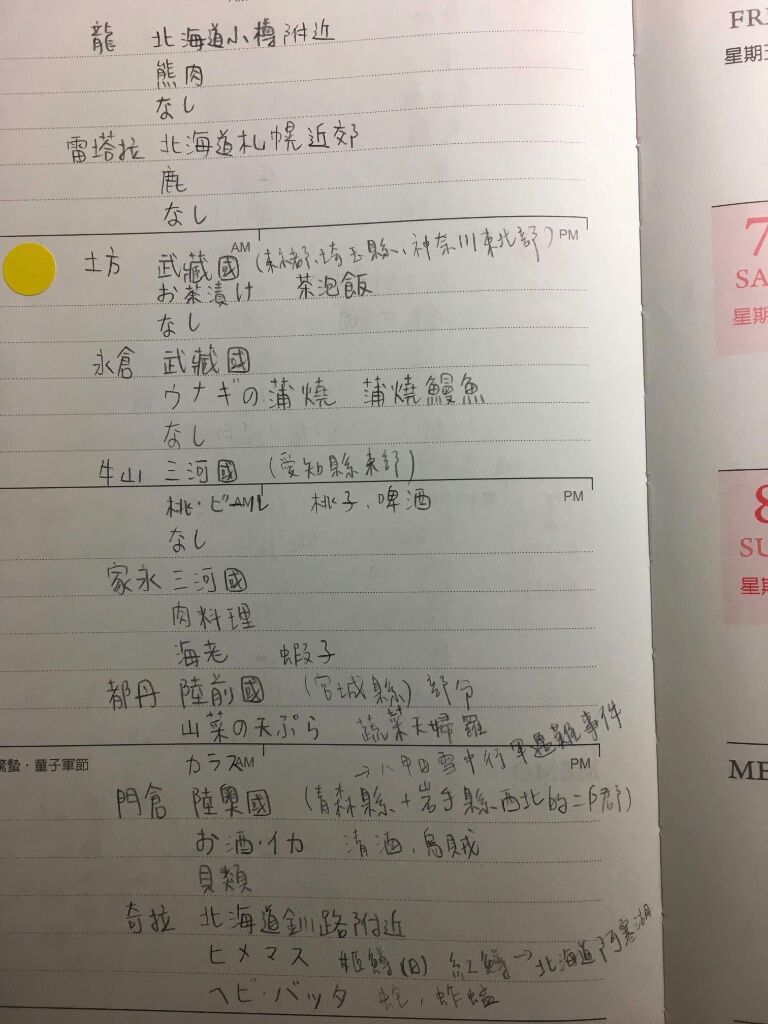 龍 北海道小樽附近
熊肉
なし
雷塔拉 北海道札幌近郊
鹿
なし
AM PM
土方 武藏國 (東京都、埼玉縣、神奈川東北部)
お茶漬け 茶泡飯
なし
永倉 武藏國
ウナギの蒲燒 蒲燒鰻魚
なし
牛山 三河國 (愛知縣東部)
AM PM
桃・ビール 桃子、啤酒
なし
家永 三河國
肉料理
海老 蝦子
都丹 陸前國 (宮城縣) 部分
山菜の天ぷら 蔬菜天婦羅
驚蟄・童子軍節
カラス AM PM
→八甲田雪中行軍遇難事件
門倉 陸奧國 (青森縣+岩手縣西北的二戶郡)
お酒・イカ 清酒、烏賊
貝類
奇拉 北海道釧路附近
ヒメマス 姫鱒(日) 紅鱒→北海道阿寒湖
ヘビ・バッタ 蛇、蚱蜢
星期五
7
SA
星期
8
SU
星期
ME